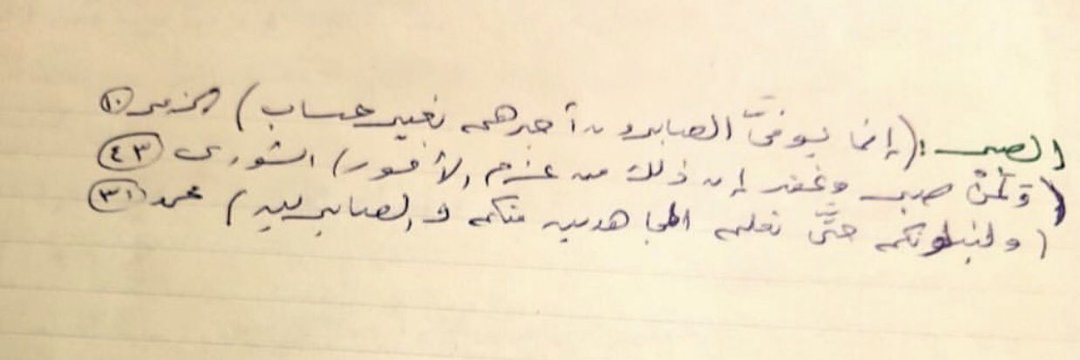 الصبر: (إنما يوفىَّ الصابرون أجرهم بغير حساب) الزمر ١٠
(وَلَمَنْ صبر وغفر إن ذلك من عزم الأمور) الشورى ٤٣
(ولنبلونكم حتَّى نعلم المجاهدين منكم والصابرين) محمد ٣١